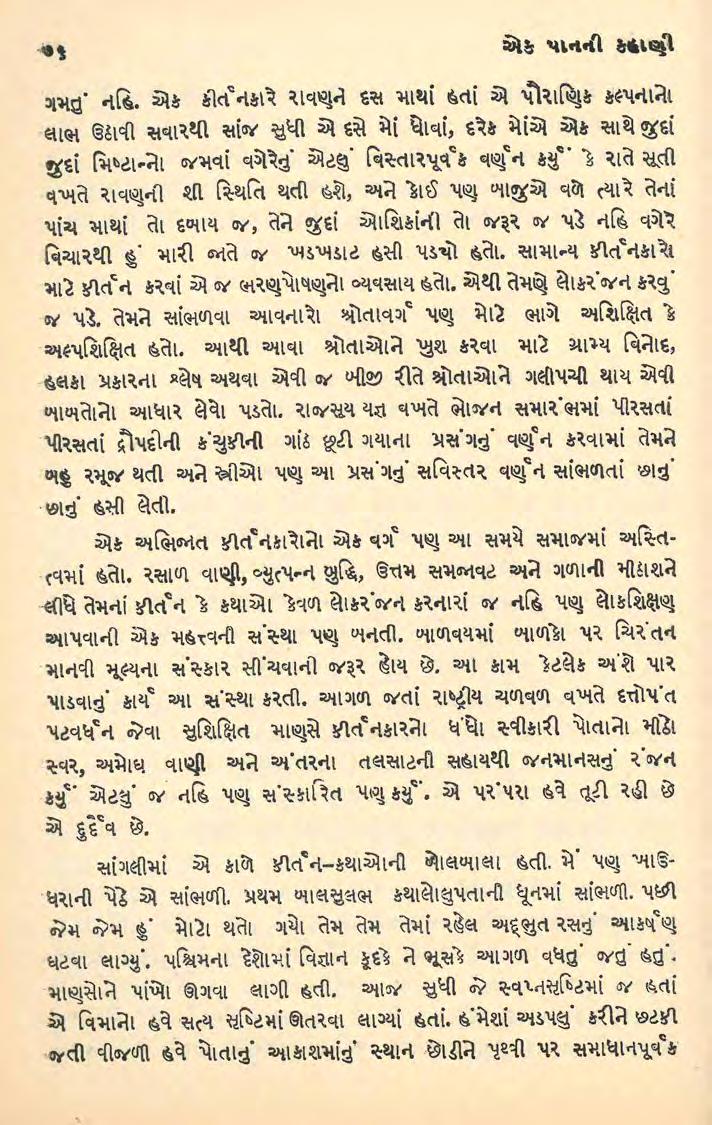 ૭૬ એક પાનની કહાણી
ગમતું નહિ. એક કીર્તનકારે રાવણને દસ માથાં હતાં એ પૌરાણિક કલ્પનાનો
લાભ ઉઠાવી સવારથી સાંજ સુધી એ દસે મોં ધોવાં, દરેક મોંએ એક સાથે જુદાં
જુદાં મિષ્ટાન્નો જમવાં વગેરેનું એટલું વિસ્તારપૂર્વક વર્ણન કર્યું કે રાતે સૂતી
વખતે રાવણની શી સ્થિતિ થતી હશે, અને કોઈ પણ બાજુએ વળે ત્યારે તેનાં
પાંચ માથાં તો દબાય જ, તેને જુદાં ઓશિકાંની તો જરૂર જ પડે નહિ વગેરે
વિચારથી હું મારી જાતે જ ખડખડાટ હસી પડ્યો હતો. સામાન્ય કીર્તનકારો
માટે કીર્તન કરવાં એ જ ભરણપોષણનો વ્યવસાય હતો. એથી તેમણે લોકરંજન કરવું
જ પડે. તેમને સાંભળવા આવનારો શ્રોતાવર્ગ પણ મોટે ભાગે અશિક્ષિત કે
અલ્પશિક્ષિત હતો. આથી આવા શ્રોતાઓને ખુશ કરવા માટે ગ્રામ્ય વિનોદ,
હલકા પ્રકારના શ્લેષ અથવા એવી જ બીજી રીતે શ્રોતાઓને ગલીપચી થાય એવી
બાબતોનો આધાર લેવો પડતો. રાજસૂય યજ્ઞ વખતે ભોજન સમારંભમાં પીરસતાં
પીરસતાં દ્રૌપદીની કંચુકીની ગાંઠ છૂટી ગયાના પ્રસંગનું વર્ણન કરવામાં તેમને
બહુ રમૂજ થતી અને સ્ત્રીઓ પણ આ પ્રસંગનું સવિસ્તર વર્ણન સાંભળતાં છાનું
છાનું હસી લેતી.
એક અભિજાત કીર્તનકારોનો એક વર્ગ પણ આ સમયે સમાજમાં અસ્તિ-
ત્વમાં હતો. રસાળ વાણી, વ્યુત્પન્ન બુદ્ધિ, ઉત્તમ સમજાવટ અને ગળાની મીઠાશને
લીધે તેમનાં કીર્તન કે કથાઓ કેવળ લોકરંજન કરનારાં જ નહિ પણ લોકશિક્ષણ
આપવાની એક મહત્ત્વની સંસ્થા પણ બનતી. બાળવયમાં બાળકો પર ચિરંતન
માનવી મૂલ્યના સંસ્કાર સીંચવાની જરૂર હોય છે. આ કામ કેટલેક અંશે પાર
પાડવાનું કાર્ય આ સંસ્થા કરતી. આગળ જતાં રાષ્ટ્રીય ચળવળ વખતે દત્તોપંત
પટવર્ધન જેવા સુશિક્ષિત માણસે કીર્તનકારનો ધંધો સ્વીકારી પોતાનો મીઠો
સ્વર, અમોઘ વાણી અને અંતરના તલસાટની સહાયથી જનમાનસનું રંજન
કર્યું એટલું જ નહિ પણ સંસ્કારિત પણ કર્યું. એ પરંપરા હવે તૂટી રહી છે
એ દુર્દૈવ છે.
સાંગલીમાં એ કાળે કીર્તન–કથાઓની બોલબાલા હતી. મેં પણ ખાઉ-
ધરાની પેઠે એ સાંભળી. પ્રથમ બાલસુલભ કથાલોલુપતાની ધૂનમાં સાંભળી. પછી
જેમ જેમ હું મોટો થતો ગયો તેમ તેમ તેમાં રહેલ અદ્ભુત રસનું આકર્ષણ
ઘટવા લાગ્યું. પશ્ચિમના દેશોમાં વિજ્ઞાન કૂદકે ને ભૂસકે આગળ વધતું જતું હતું.
માણસોને પાંખો ઊગવા લાગી હતી. આજ સુધી જે સ્વપ્નસૃષ્ટિમાં જ હતાં
એ વિમાનો હવે સત્ય સૃષ્ટિમાં ઊતરવા લાગ્યાં હતાં. હંમેશાં અડપલું કરીને છટકી
જતી વીજળી હવે પોતાનું આકાશમાંનું સ્થાન છોડીને પૃથ્વી પર સમાધાનપૂર્વક